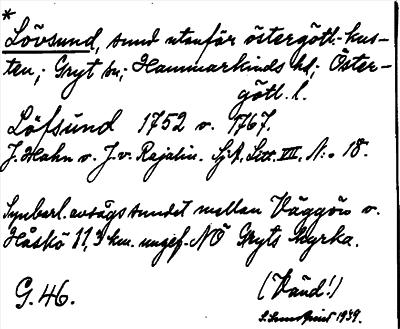 *
Lövsund, sund utanför östergötl. kus-
ten; Gryt sn; Hammarkinds hd; Öster-
götl. l.
Löfsund 1752 o. 1767.
J. Hahn o. J. v. Rajalin. Sj.A. Litt. VII. N:o 18.
Synbarl. avságs sundet mellan Väggön o.
Håskö 11,3 km. ungef. NÖ Gryts kyrka.
G. 46.
(Vänd!)
1939.